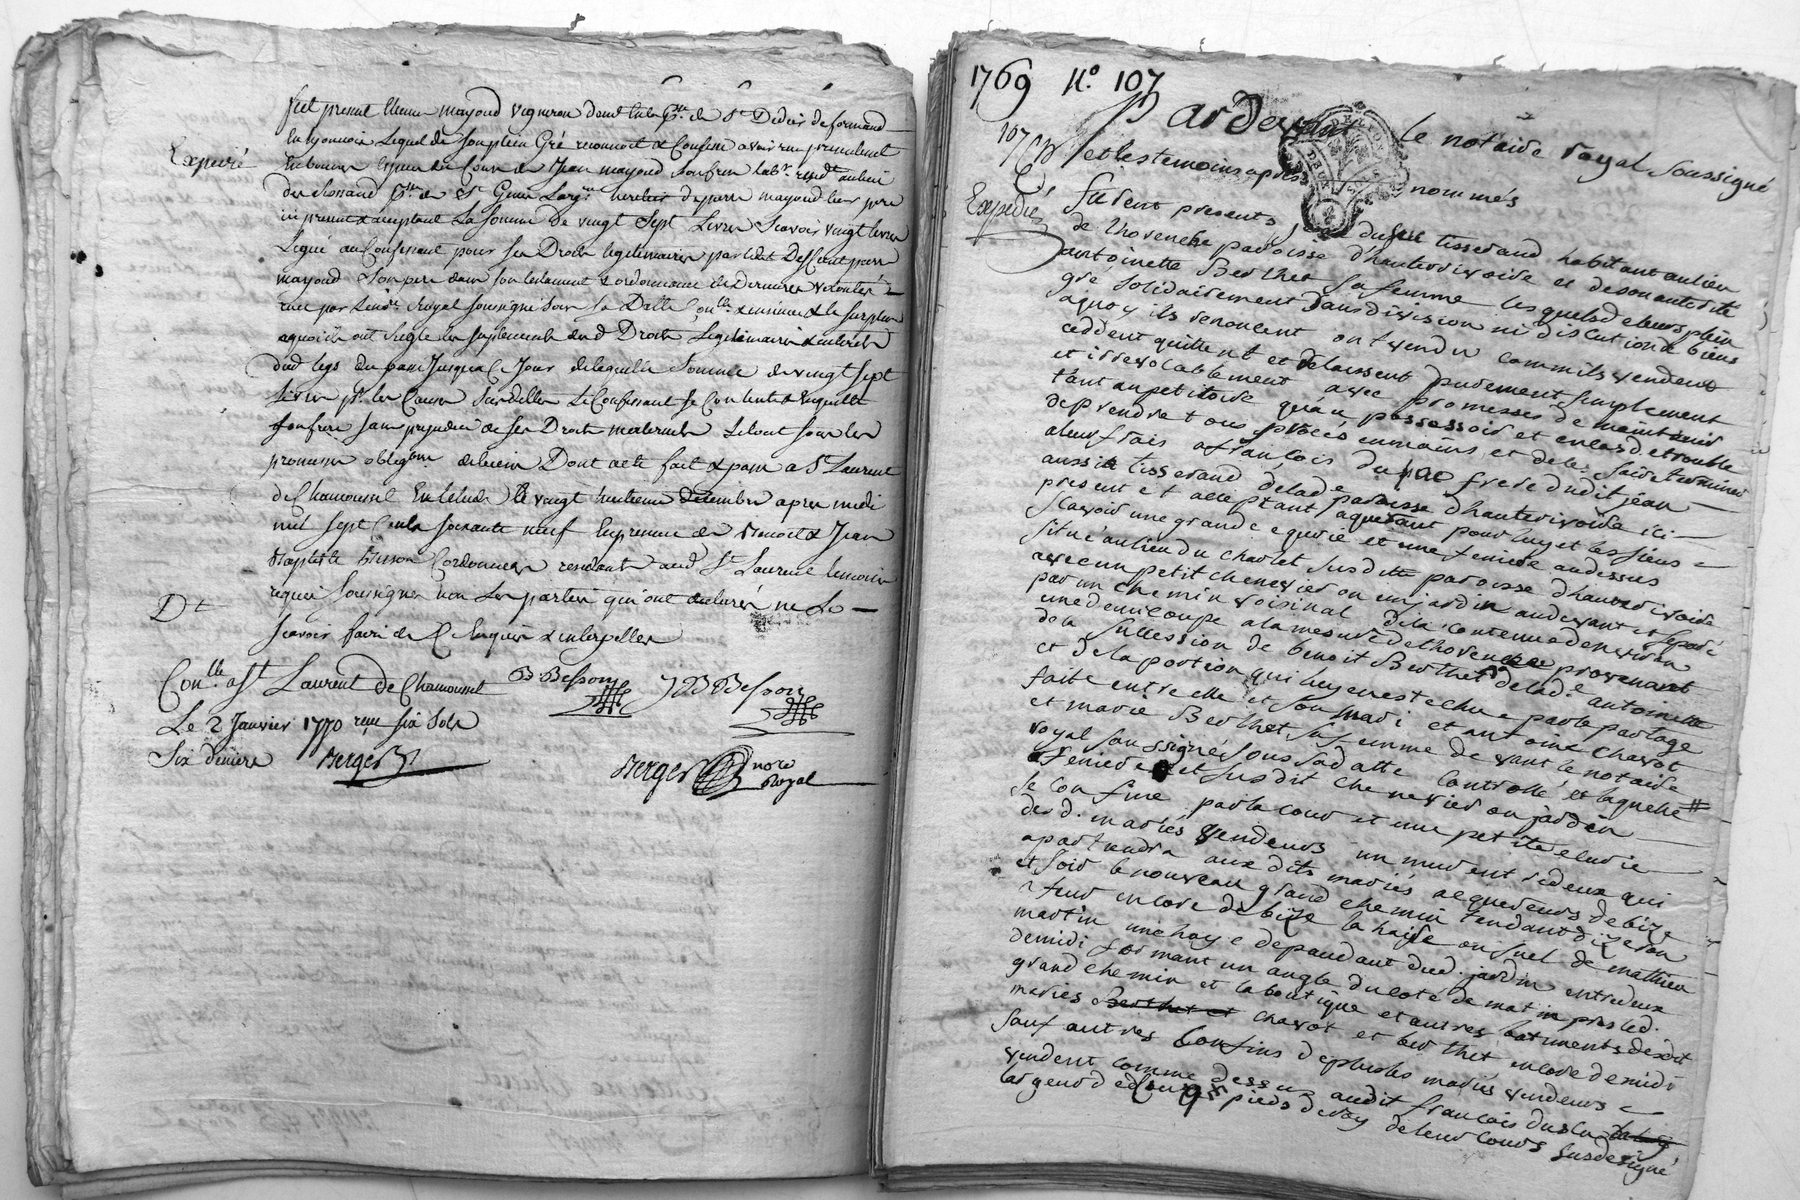 fut present Marie mayoud vigneron demt en la psse de St Didier de formand
en lyonnois Lequel de Son plein Gré reconnoit & Confesse avoir reçu presentement
Expedié
en bonnes Espèces du Cours de Jean mayoud Son frere lab.r resid.t au lieu
du Rossand psse de St Genis Largr heritier de pierre mayoud leur pere
ici present & acceptant La Somme De vingt Sept Livres Scavoir vingt livres
Legué au Confessant pour Ses Droits legitimaires par ledit Deffunt pierre
mayoud Son pere dans Son testament & ordonnance de Derniere volonté
reçu par Le nore Royal Soussigné Sous Sa Datte Conllé & insinué & le Surplus
a quoi ils ont Reglé les Suplements desd Droits Legitimaires & interets
dud legs du passé Jusqu'a Ce Jour de laquelle Somme de vingt Sept
Livres pr les Causes Susdittes Le Confessant Se Contente & En quitte
Son frere Sans prejudice de Ses Droits maternels Le tout Sous les
promesses obligons Dont acte fait & passé a St Laurent
de Chamousset En l'etude le vingt huitieme decembre apres midi
mil Sept Cents Soixante neuf En presence de Benoit & Jean
Baptiste Besson Cordonniers residants aud St Laurent temoins
requis Soussignés non Les parties qui ont declaré ne Le
Dt
Scavoir faire de Ce Enquises & interpellées
Conllé a St Laurent de Chamousset
B Besson
JB Besson
Le 2 Janvier 1770 reçu Six Sols
Six deniers Berger
Berger nore
Royal
1769 No. 107
107
Par Devant le notaire royal Soussigné
et les temoins apres nommés
Expedié
furent presents dusuc tisserand habitant au lieu
de Thorenche paroisse d'hauterivoire et de son autorité
antoinette Berthet Sa femme les quels de leurs plein
gré solidairement Sans division ni discution de biens
a quoy ils renoncent ont vendu comm'ils vendent
ceddent quittent et délaissent purement Simplement
et irrevocablement avec promesses de maintenir
tant au petitoire qu'au possessoir et en cas de trouble
de prendre tous procés en mains et de les faire terminer
a leurs frais a françois dusuc frere dudit jean
aussi tisserand de lad.e paroisse d'hauterivoire ici
present et acceptant aquerant pour luy et les siens
Scavoir une grande equrie et une feniere au dessus
situé au lieu du charlet Susditte paroisse d'hauterivoire
avec un petit chenevier ou un jardin au devant et separé
par un chemin voisinal de la contenue d'environ
une demi coupe a la mesure de thorenche provenant
de la Succession de benoit Berthet de lad.e antoinette
et de la portion qui luy en est echue par le partage
faitte entre elle et Son mari et antoine chavot
et marie Berthet Sa femme devant le notaire
royal Soussigné Sous Sa datte Controllé et laquelle #
feniere et Susdit chenevier ou jardin
Se confine par la cour et une petite ecurie
desd. mariés vendeurs un mur entredeux qui
apartiendra aux dits mariés aquereurs de bize
et Soir le nouveau grand chemin tendant d'izeron
a feur encore de bize la haye ou suel de mathieu
martin une haye dependant dud. jardin entredeux
de midi formant un angle du coté de matin pres led.
grand chemin et la boutique et autres batiments desdits
mariés Berthet et chavot et berthet encore de midi
Sauf autres Confins De plus les mariés vendeurs
vendent comme dessus audit françois dusuc
largeur de cinq pieds de roy de leur cours Susdesigné